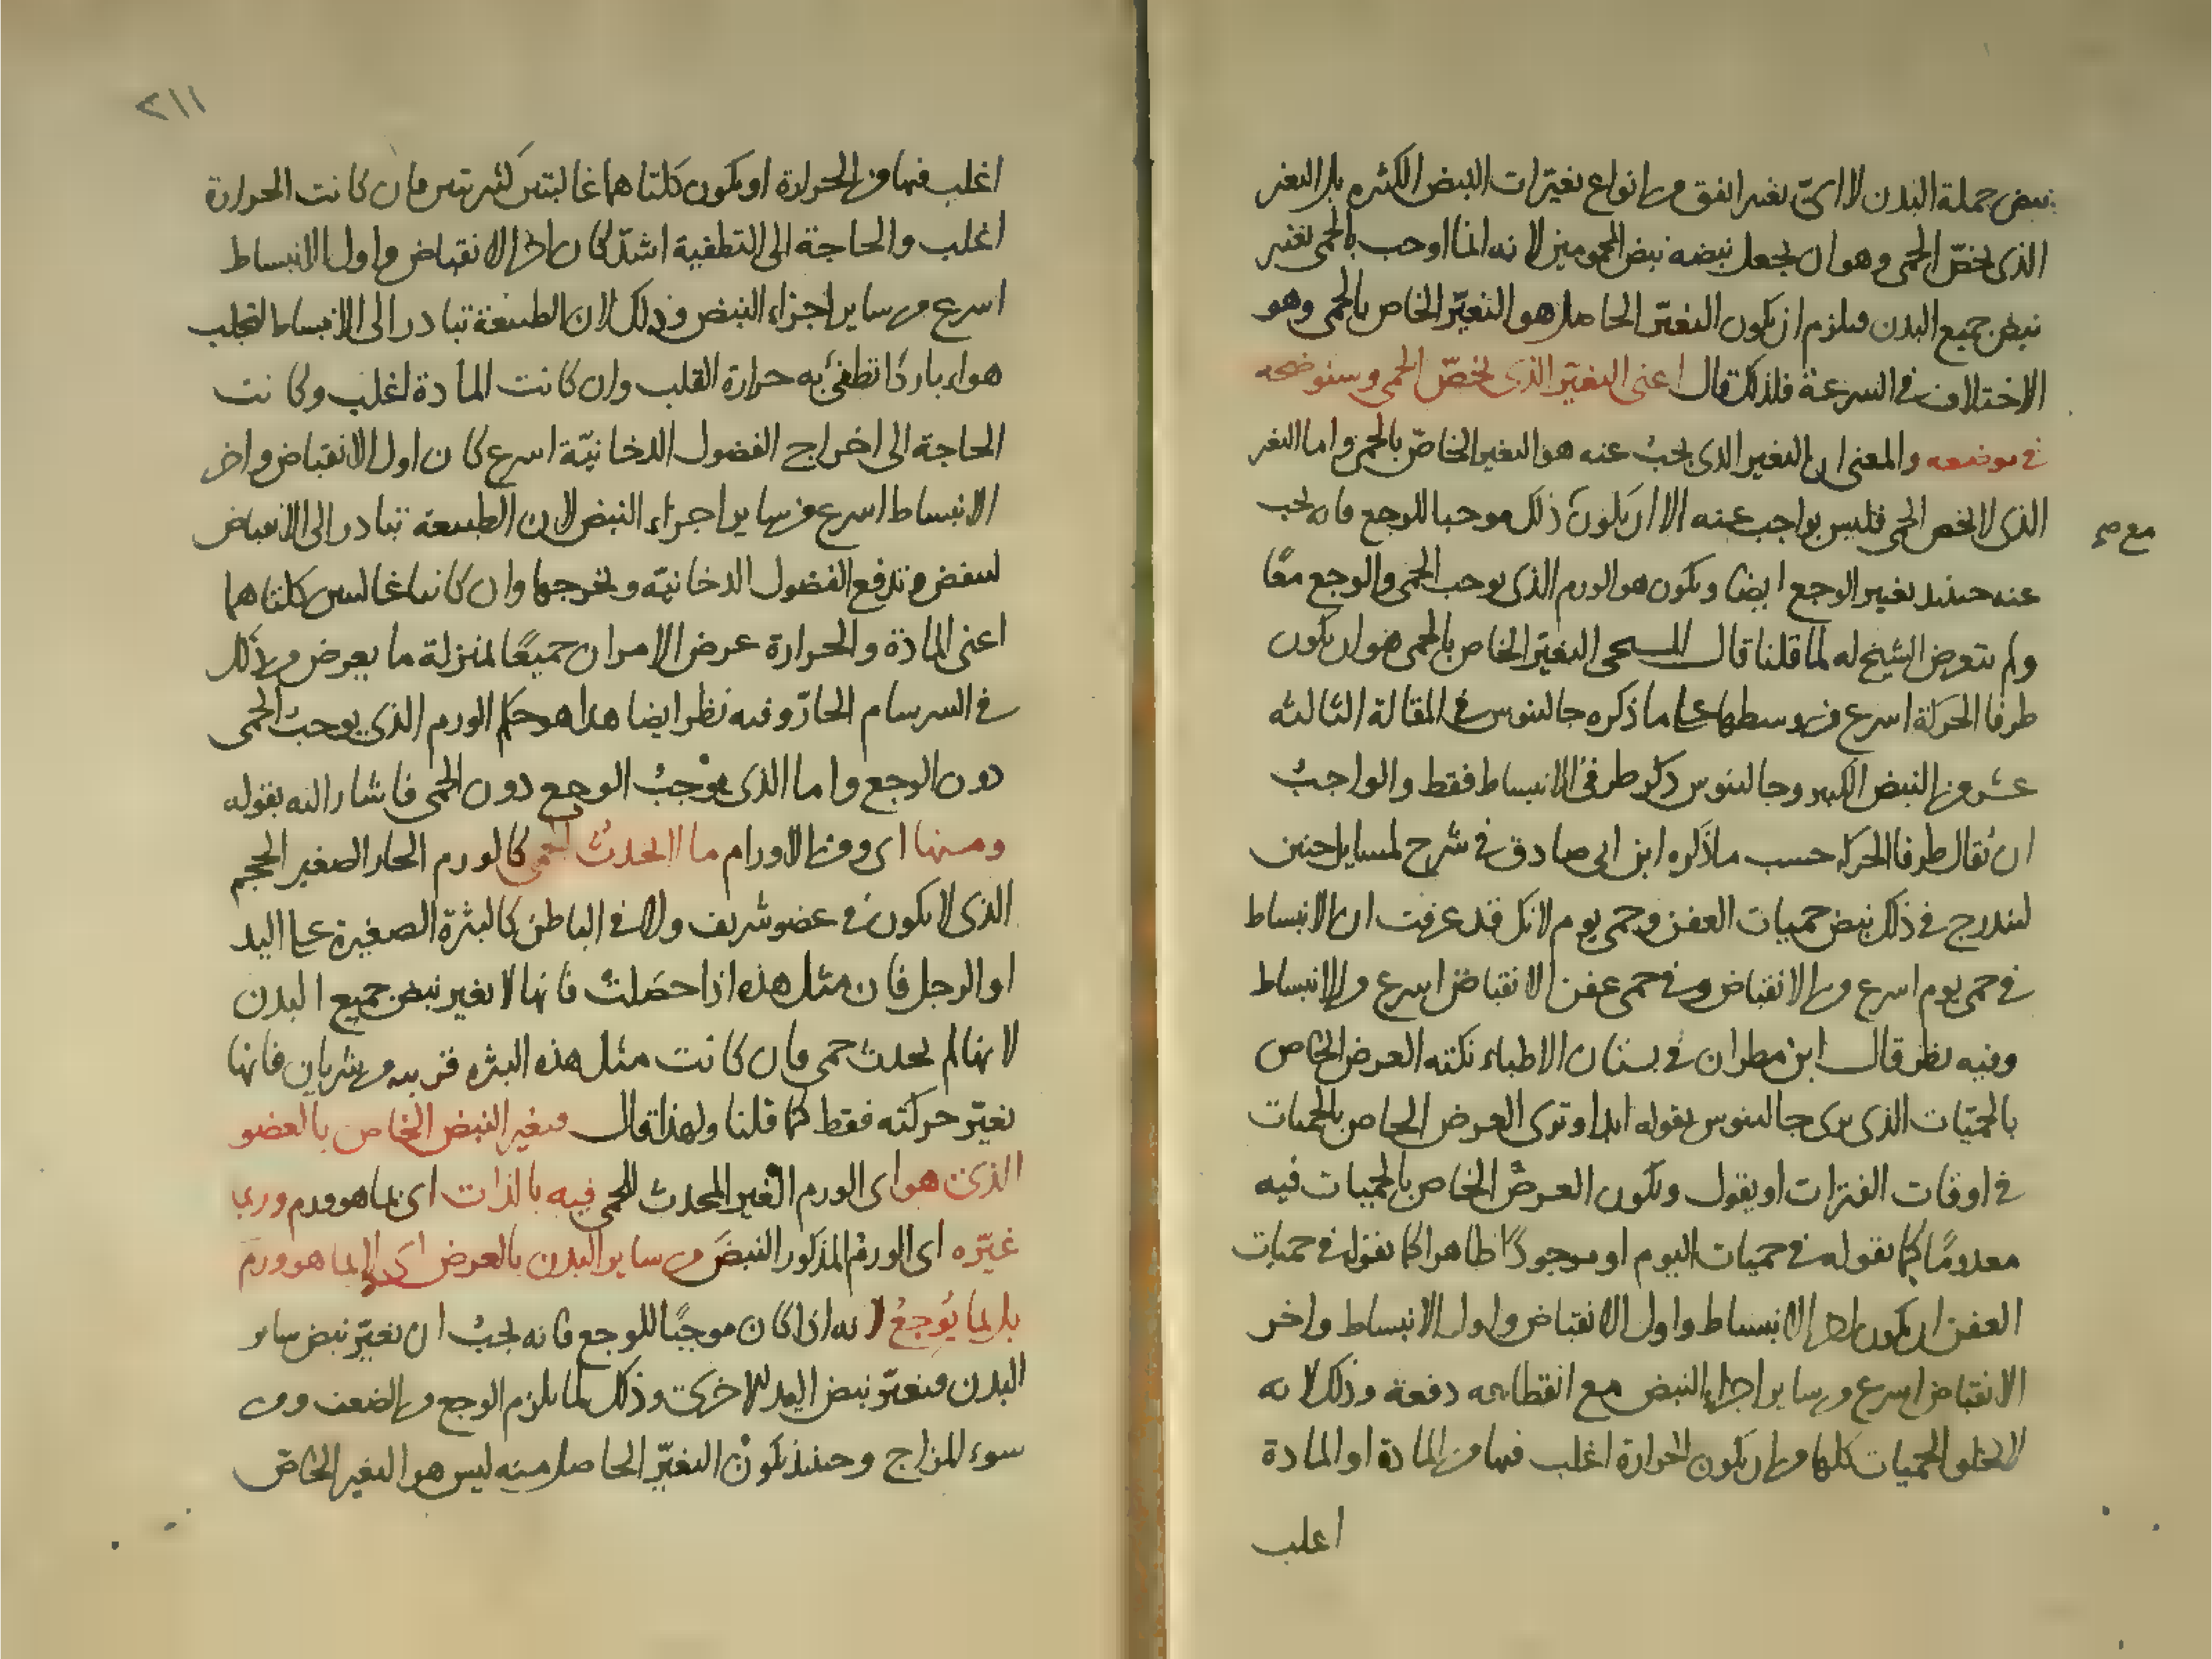 نبض جملة البدن لا اىّ تغير اتفق من انواع تغيّرات النبض الكثيره بل التغير
الذى يخصّ الحمى وهو ان يجعل نبضه نبض المحمومين لانه لما اوجب بالحمى تغير
نبض جميع البدن فيلزم ان يكون التغيّر الحاصل هو التغيّر الخاص بالحمى وهو
الاختلاف فى السرعة فلذلك قال اعنى التغيّر الذى يخصّ الحمى وسنوضحه
فى موضعه والمعنى ان التغير الذى يجبُ عنه هو التغير الخاصّ بالحمى واما التغير
الذى لا يخص الحمى فليس بواجب عنه الا ان يكون ذلك موجبا للوجع فانه يجب
مع صح
عنه حينئذ تغير الوجع ايضا ويكون هو الورم الذى يوجب الحمى والوجع معًا
ولم يتعرض الشيخ له لما قلنا قال المسيحى التغيّر الخاص بالحمى هو ان يكون
طرفا الحركة اسرع من وسطها على ما ذكره جالينوس فى المقالة الثالثه
عشر من النبض الكبير وجالينوس ذكر طرفى الانبساط فقط والواجبُ
ان يُقال طرفا الحركه حسب ما ذكره ابن ابى صادق فى شرح لمسايل حنين
ليندرج فى ذلك نبض حميات العفن وحمى يوم لانك قد عرفت ان الانبساط
فى حمى يوم اسرع من الانقباض وفى حمى عفن الانقباض اسرع من الانبساط
وفيه نظر قال ابن مطران فى بستان الاطباء نكته العرض الخاص
بالحمّيات الذى يرى جالينوس يقوله ابدا وترى العرض الخاص بالحميات
فى اوقات الفترات او يقول ويكون العرضُ الخاص بالحميات فيه
معدومًا كما يقوله فى حميات اليوم او موجودًا ظاهرا كما يقوله فى حميات
العفن ان يكون اخر الانبساط واول الانقباض واول الانبساط واخر
الانقباض اسرع من ساير اجزاء النبض مع انقطاعه دفعة وذلك لانه
لا يخلو الحميات كلها من ان يكون الحرارة اغلب فيها من المادة او المادة
اغلب
٢١١
اغلب فيها من الحرارة او يكون كلتاهما غالبتين كثيرتين فان كانت الحرارة
اغلب والحاجة الى التطفية اشدّ كان اخر الانقباض واول الانبساط
اسرع من ساير اجزاء النبض وذلك لان الطبيعة تبادر الى الانبساط لتجلب
هواء باردًا تطفئ به حرارة القلب وان كانت المادة اغلب وكانت
الحاجة الى اخراج الفضول الدخانيّة اسرع كان اول الانقباض واخر
الانبساط اسرع من ساير اجزاء النبض لان الطبيعة تبادر الى الانقباض
لينقبض وتدفع الفضول الدخانيّه وتخرجها وان كانتا غالبتين كلتاهما
اعنى المادة والحرارة عرض الامران جميعًا بمنزلة ما يعرض من ذلك
فى السرسام الحارّ وفيه نظر ايضا هذا هو حكم الورم الذى يوجبُ الحمى
دون الوجع واما الذى يوْجبُ الوجع دون الحمى فاشار اليه بقوله
ومنها اى ومن الاورام ما لا يحدثُ الحمى كالورم الحار الصغير الحجم
الذى لا يكون فى عضو شريف ولا فى الباطن كالبثرة الصغيرة على اليد
او الرجل فان مثل هذه اذا حصَلتْ فانها لا تغير نبض جميع البدن
لانها لم تحدث حمى فان كانت مثل هذه البثره قريبه من شريان فانها
تغيّر حركته فقط كما قلنا ولهذا قال فيغير النبض الخاص بالعضو
الذى هو اى الورم الغير المحدث للحمى فيه بالذات اى بما هو ورم وربما
غيّره اى الورمُ المذكور النبضَ من ساير البدن بالعرض اى لا بما هو ورم
بل بما يُوجِعُ لانه اذا كان موجبًا للوجع فانه يجبُ ان يغيّر نبض ساير
البدن فيتغيّر نبض اليد الاخرى وذلك لما يلزم الوجع من الضعف ومن
سوء المزاج وحينئذ يكون التغيّر الحاصل منه ليس هو التغير الخاصّ